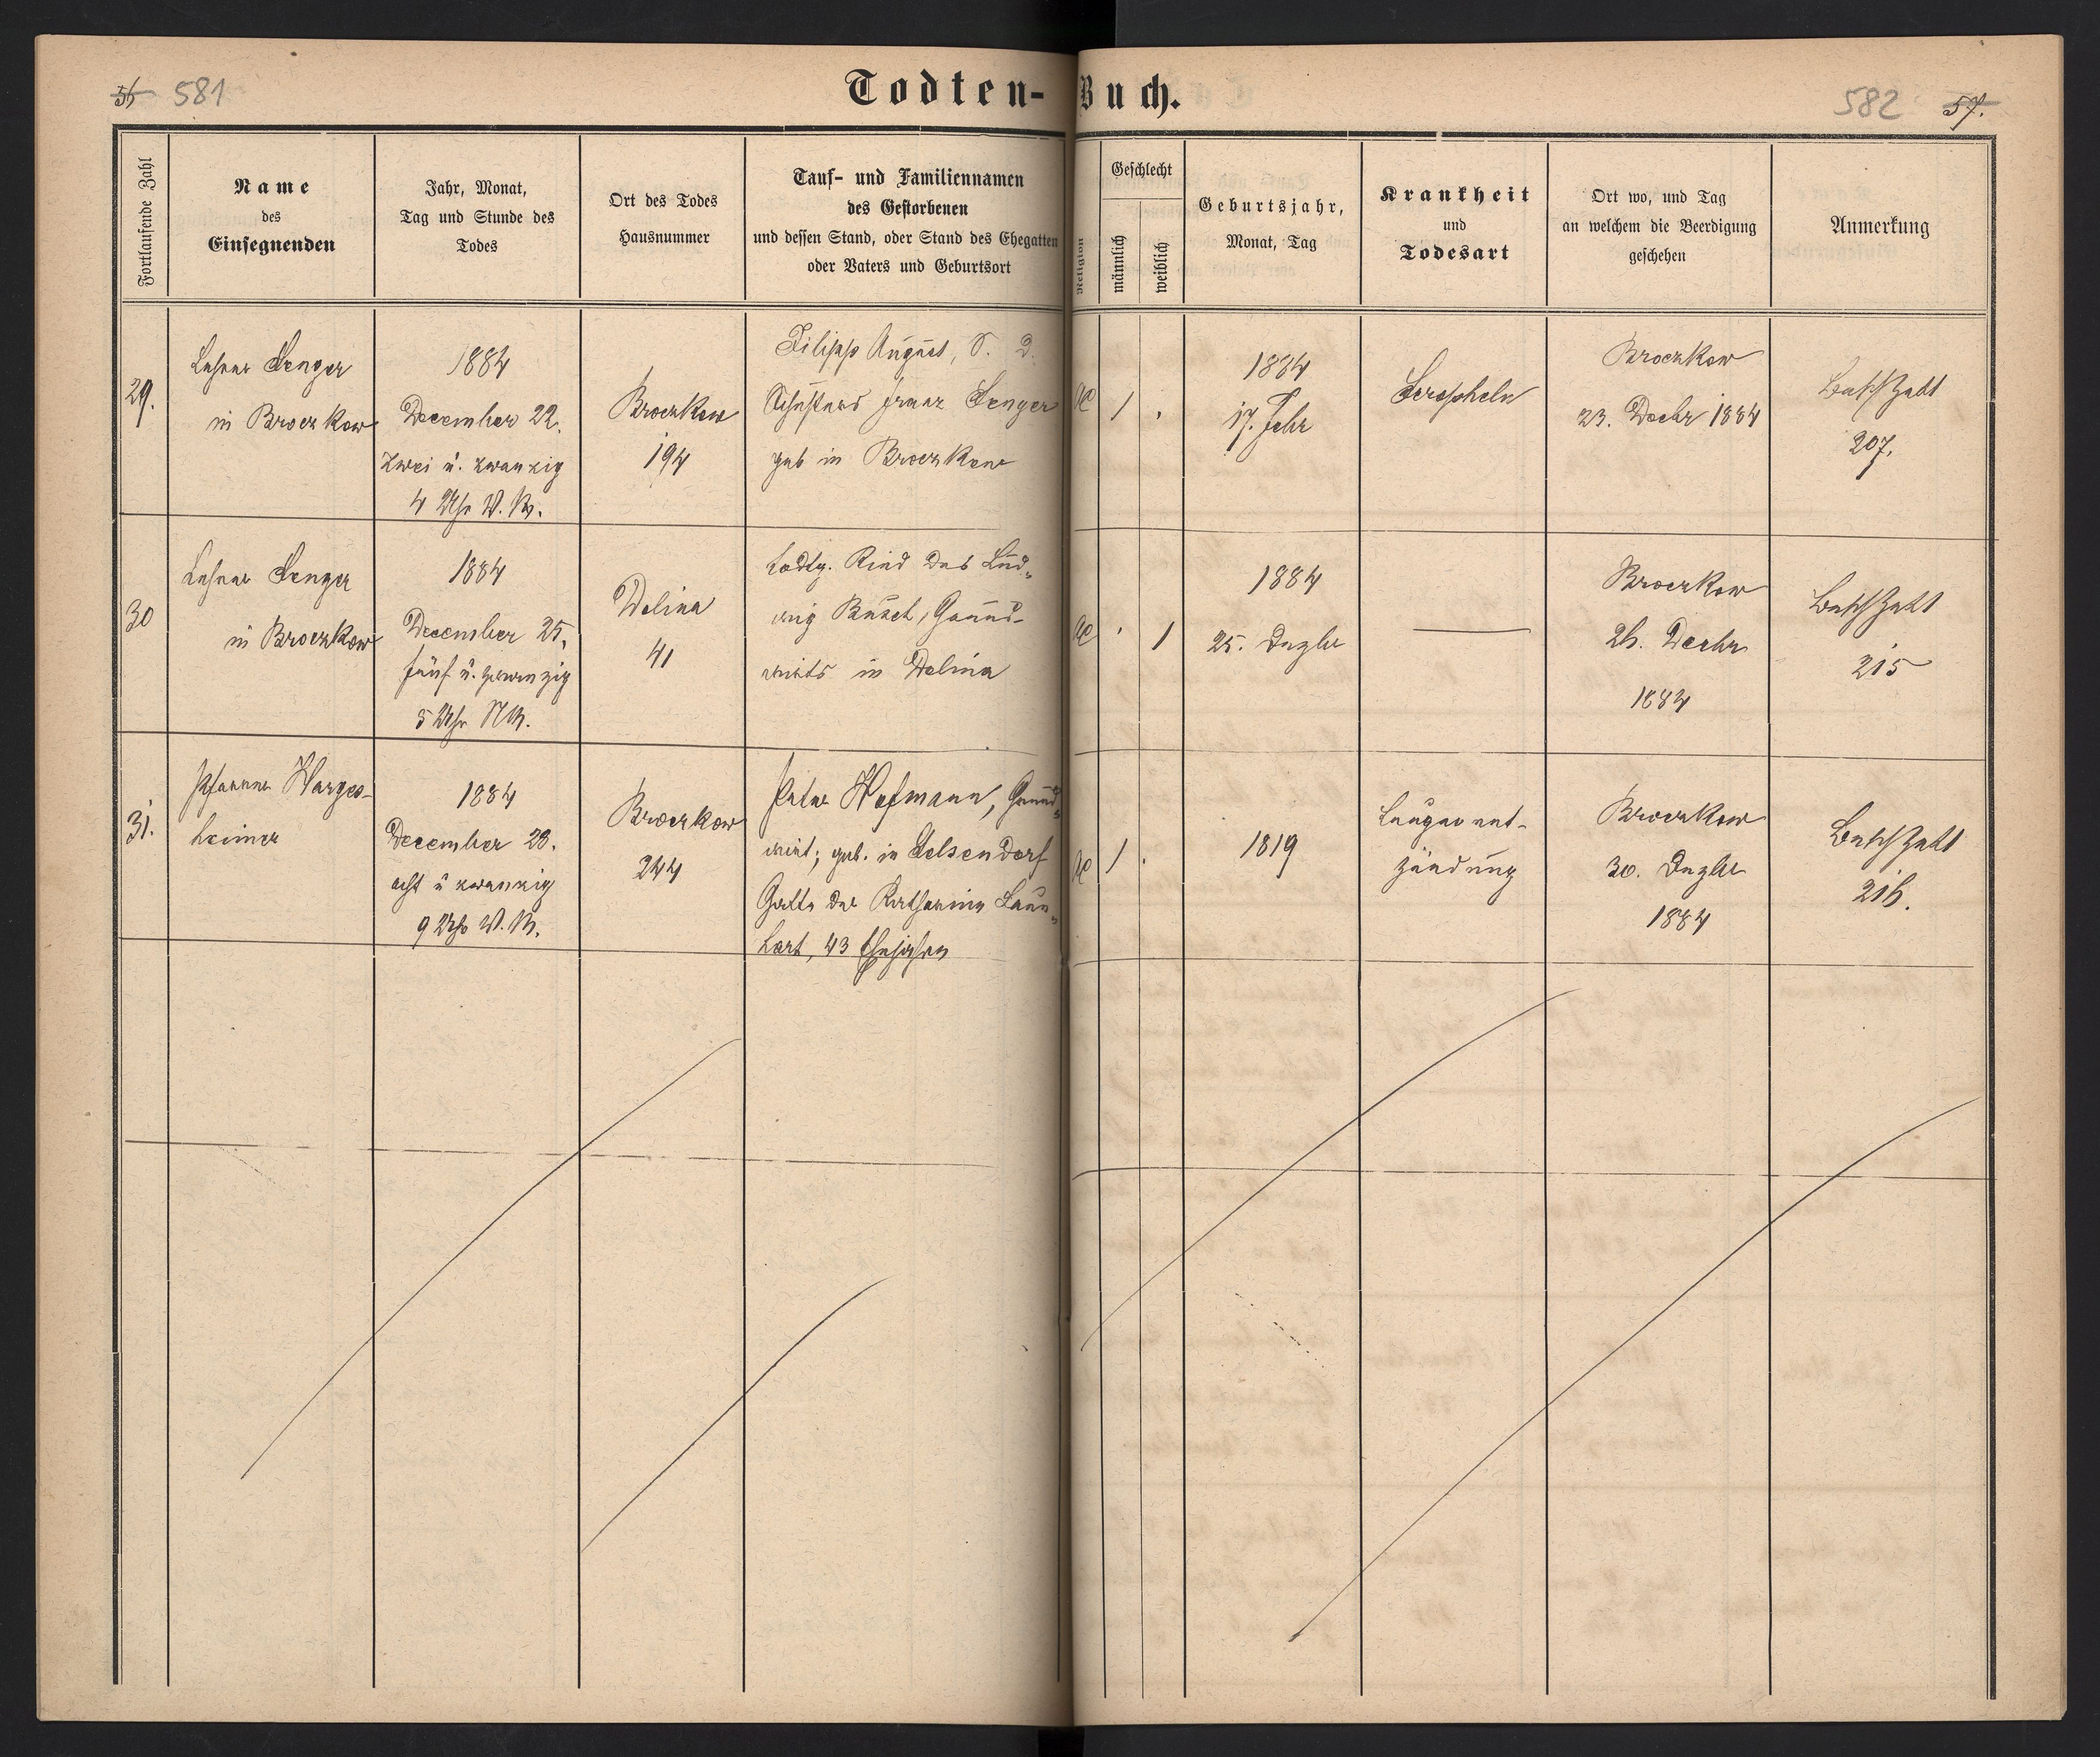 56 581
Todten-Buch.
582 57.
Fortlaufende Zahl
Name
des
Einsegnenden
Jahr, Monat,
Tag und Stunde des
Todes
Ort des Todes
Hausnummer
Tauf- und Familiennamen
des Gestorbenen
und dessen Stand, oder Stand des Ehegatten
oder Vaters und Geburtsort
Religion
Geschlecht
männlich
weiblich
Geburtsjahr,
Monat, Tag
Krankheit
und
Todesart
Ort wo, und Tag
an welchem die Beerdigung
geschehen
Anmerkung
29.
Lehrer Senger
in Broczkow
1884
December 22.
zwei u. zwanzig
4 Uhr V. M.
Broczkow
194
Filipp August, S. d.
Schusters Franz Senger
geb in Broczkow
1
1884
17. Febr
Scropheln
Broczkow
23. Decbr 1884
207.
30
Lehrer Senger
in Broczkow
1884
December 25.
fünf u. zwanzig
5 Uhr NM.
Dolina
41
todtg. Kind des Lud-
wig Busch, Grund-
wirts in Dolina
1
1884
25. Dezbr
Broczkow
26. Decbr
1884
215
31.
Pfarrer Harges-
heimer
1884
December 28.
acht u zwanzig
9 Uhr V. M.
Broczkow
244
Peter Hofmann, Grund-
wirt; geb. in Gelsendorf
Gatte der Katharina
43 Ehejahre
1
1819
Lungenent-
zündung
Broczkow
30. Dezbr
1884
216.